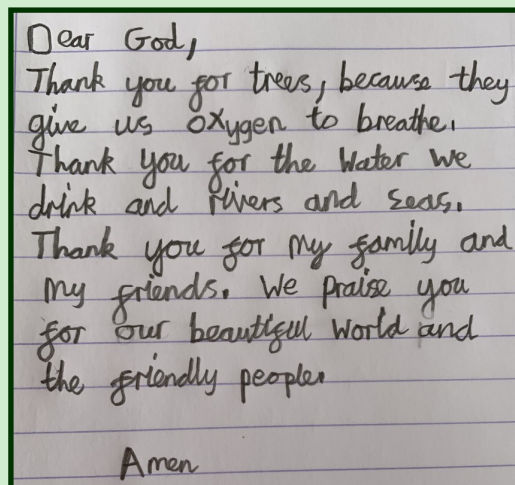 Dear God,
Thank you for trees, because they
give us oxygen to breathe.
Thank you for the water we
drink and rivers and seas.
Thank you for my family and
my friends. We praise you
for our beautiful world and
the friendly people.
Amen